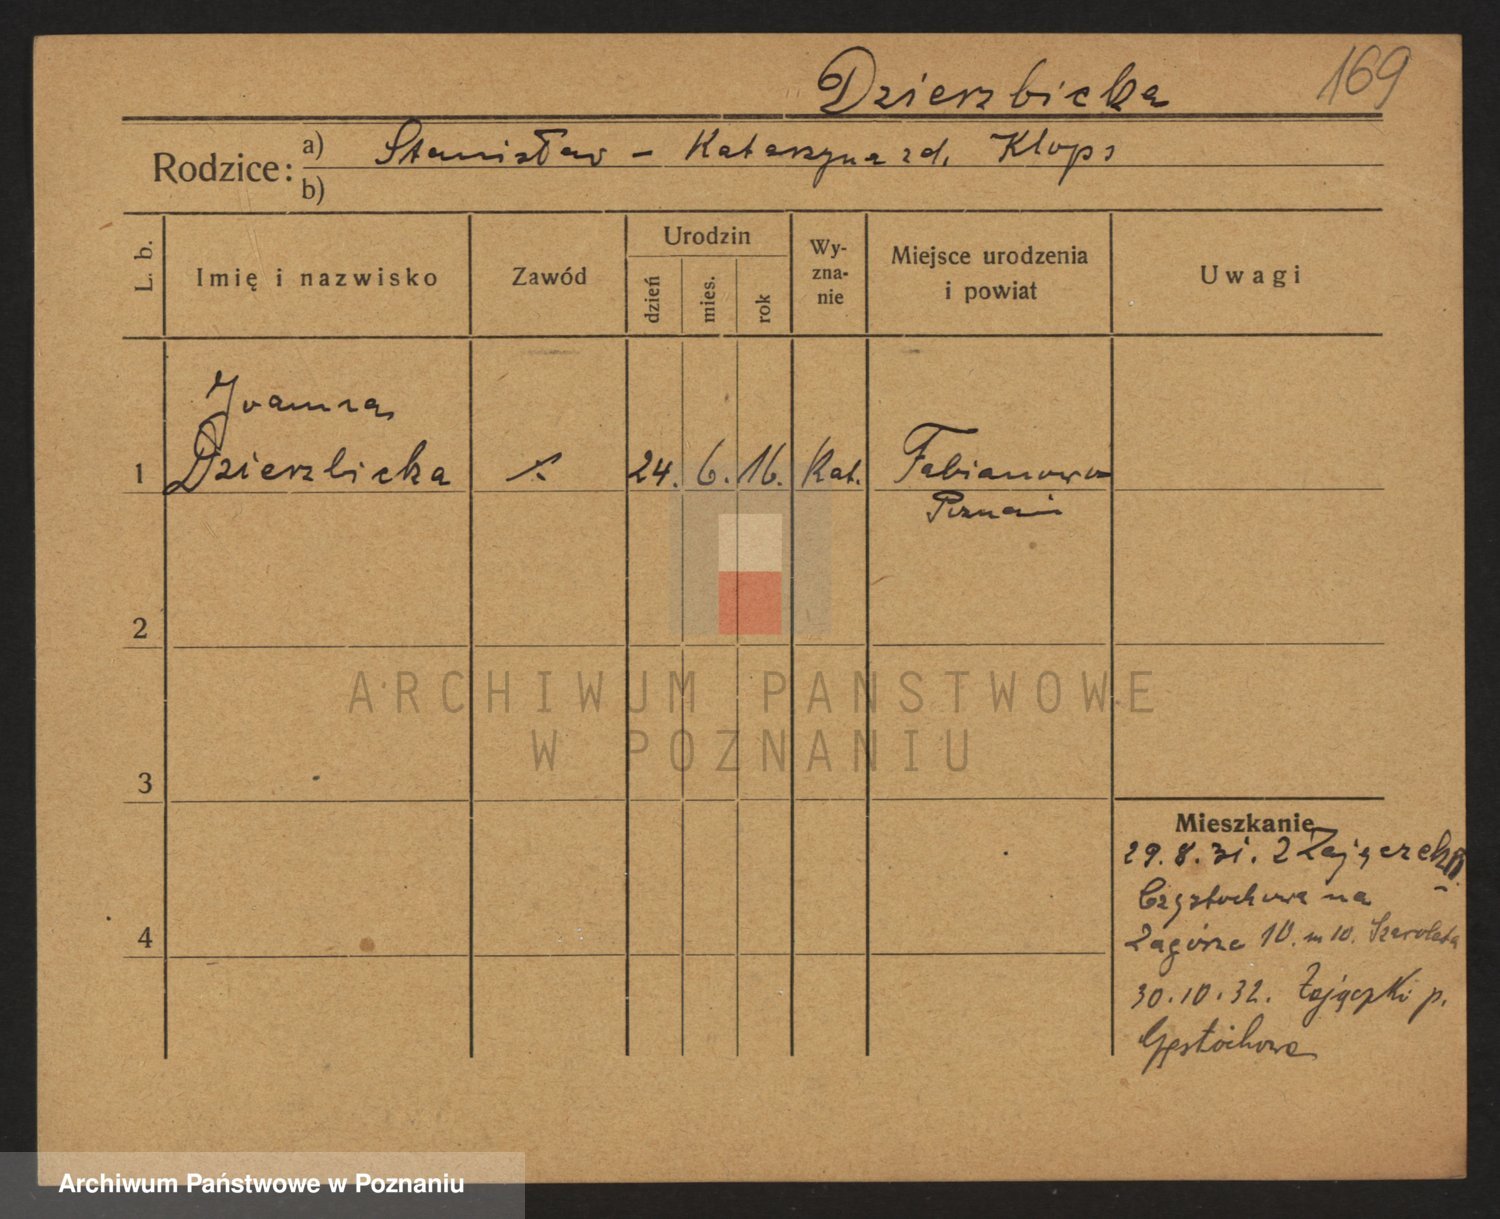 Dzierzbicka
169
Rodzice:
a) Stanisław – Katarzyna zd. Klops
b)
L. b.
Imię i nazwisko
Zawód
Urodzin
dzień
mies.
rok
Wy-
zna-
nie
Miejsce urodzenia
i powiat
Uwagi
Joanna
1 Dzierzbicka 24. 6. 16. Kat. Fabianowo
Poznań
2
ARCHIWUM PAŃSTWOWE
W POZNANIU
3
Mieszkanie
29.8.31. z
Częstochowa na
4
Zagórze 10. m 10.
30.10.32. Zajączki p.
Częstochowa
Archiwum Państwowe w Poznaniu